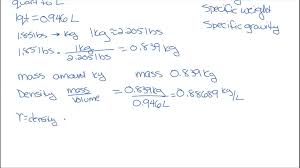 quart → L
1qt = 0.946 L
1.85 lbs → kg 1kg = 2.205 lbs
1.85 lbs · 1kg / 2.205 lbs = 0.839 kg
mass amount kg mass 0.839 kg
Density mass / volume = 0.839 kg / 0.946 L = 0.88689 kg/L
γ = density ·
Specific weight
Specific gravity